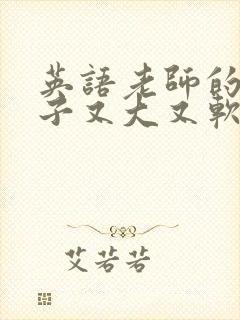 英語老師的
子又大又軟
艾若若